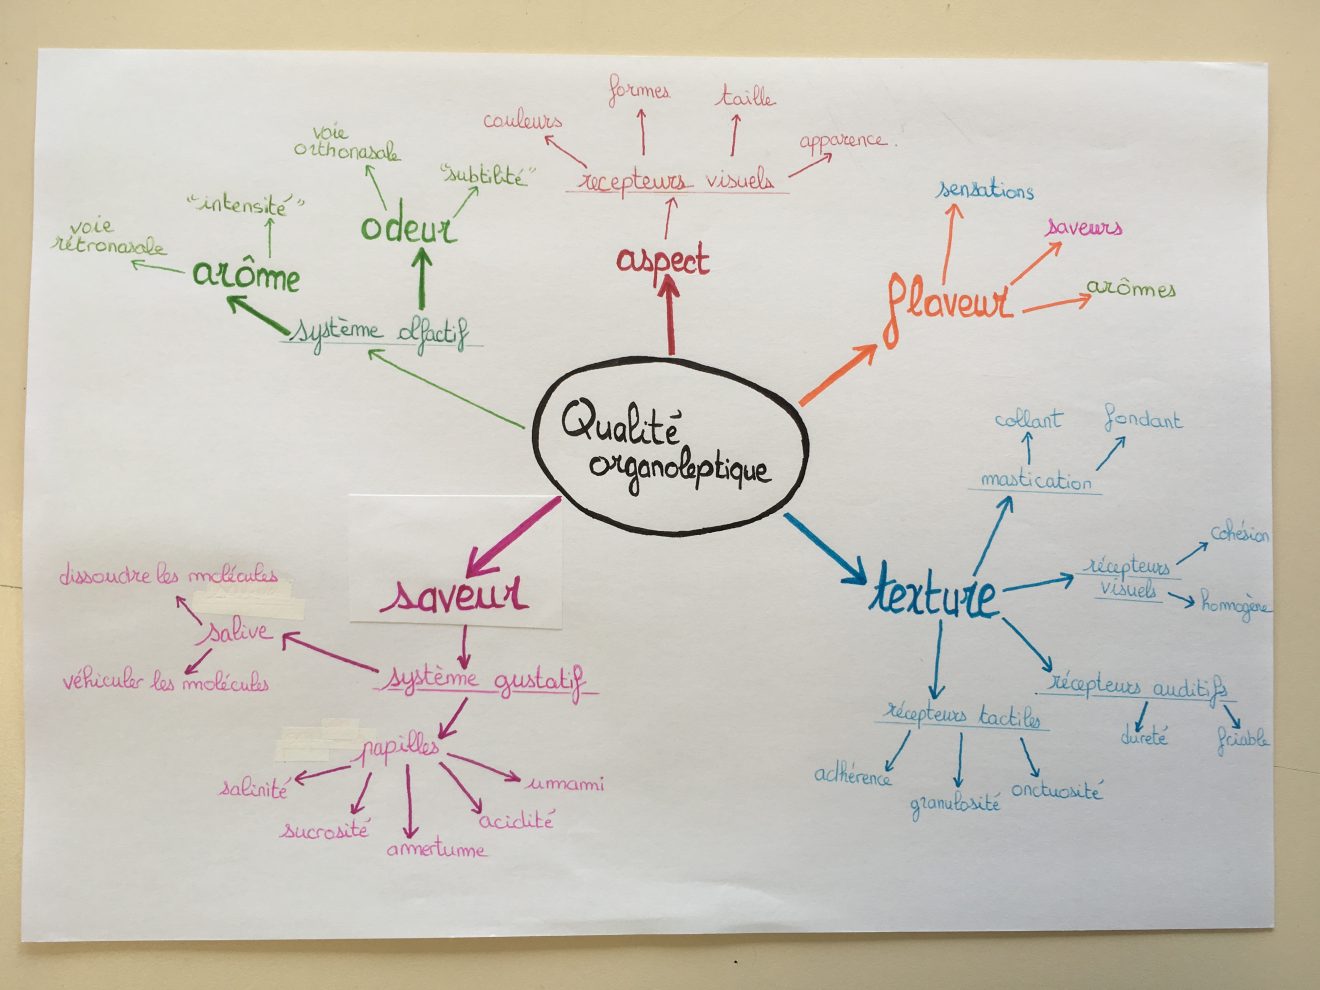 formes
taille
couleurs
apparence.
recepteurs visuels
aspect
voie
orthonasale
"subtilité"
odeur
"intensité"
voie
rétronasale
arôme
système olfactif
sensations
saveurs
arômes
flaveur
Qualité
organoleptique
collant
fondant
mastication
cohésion
récepteurs
visuels
homogène
texture
récepteurs auditifs
dureté
friable
récepteurs tactiles
adhérence
granulosité
onctuosité
saveur
dissoudre les molécules
salive
véhiculer les molécules
système gustatif
papilles
salinité
sucrosité
amertume
acidité
umami